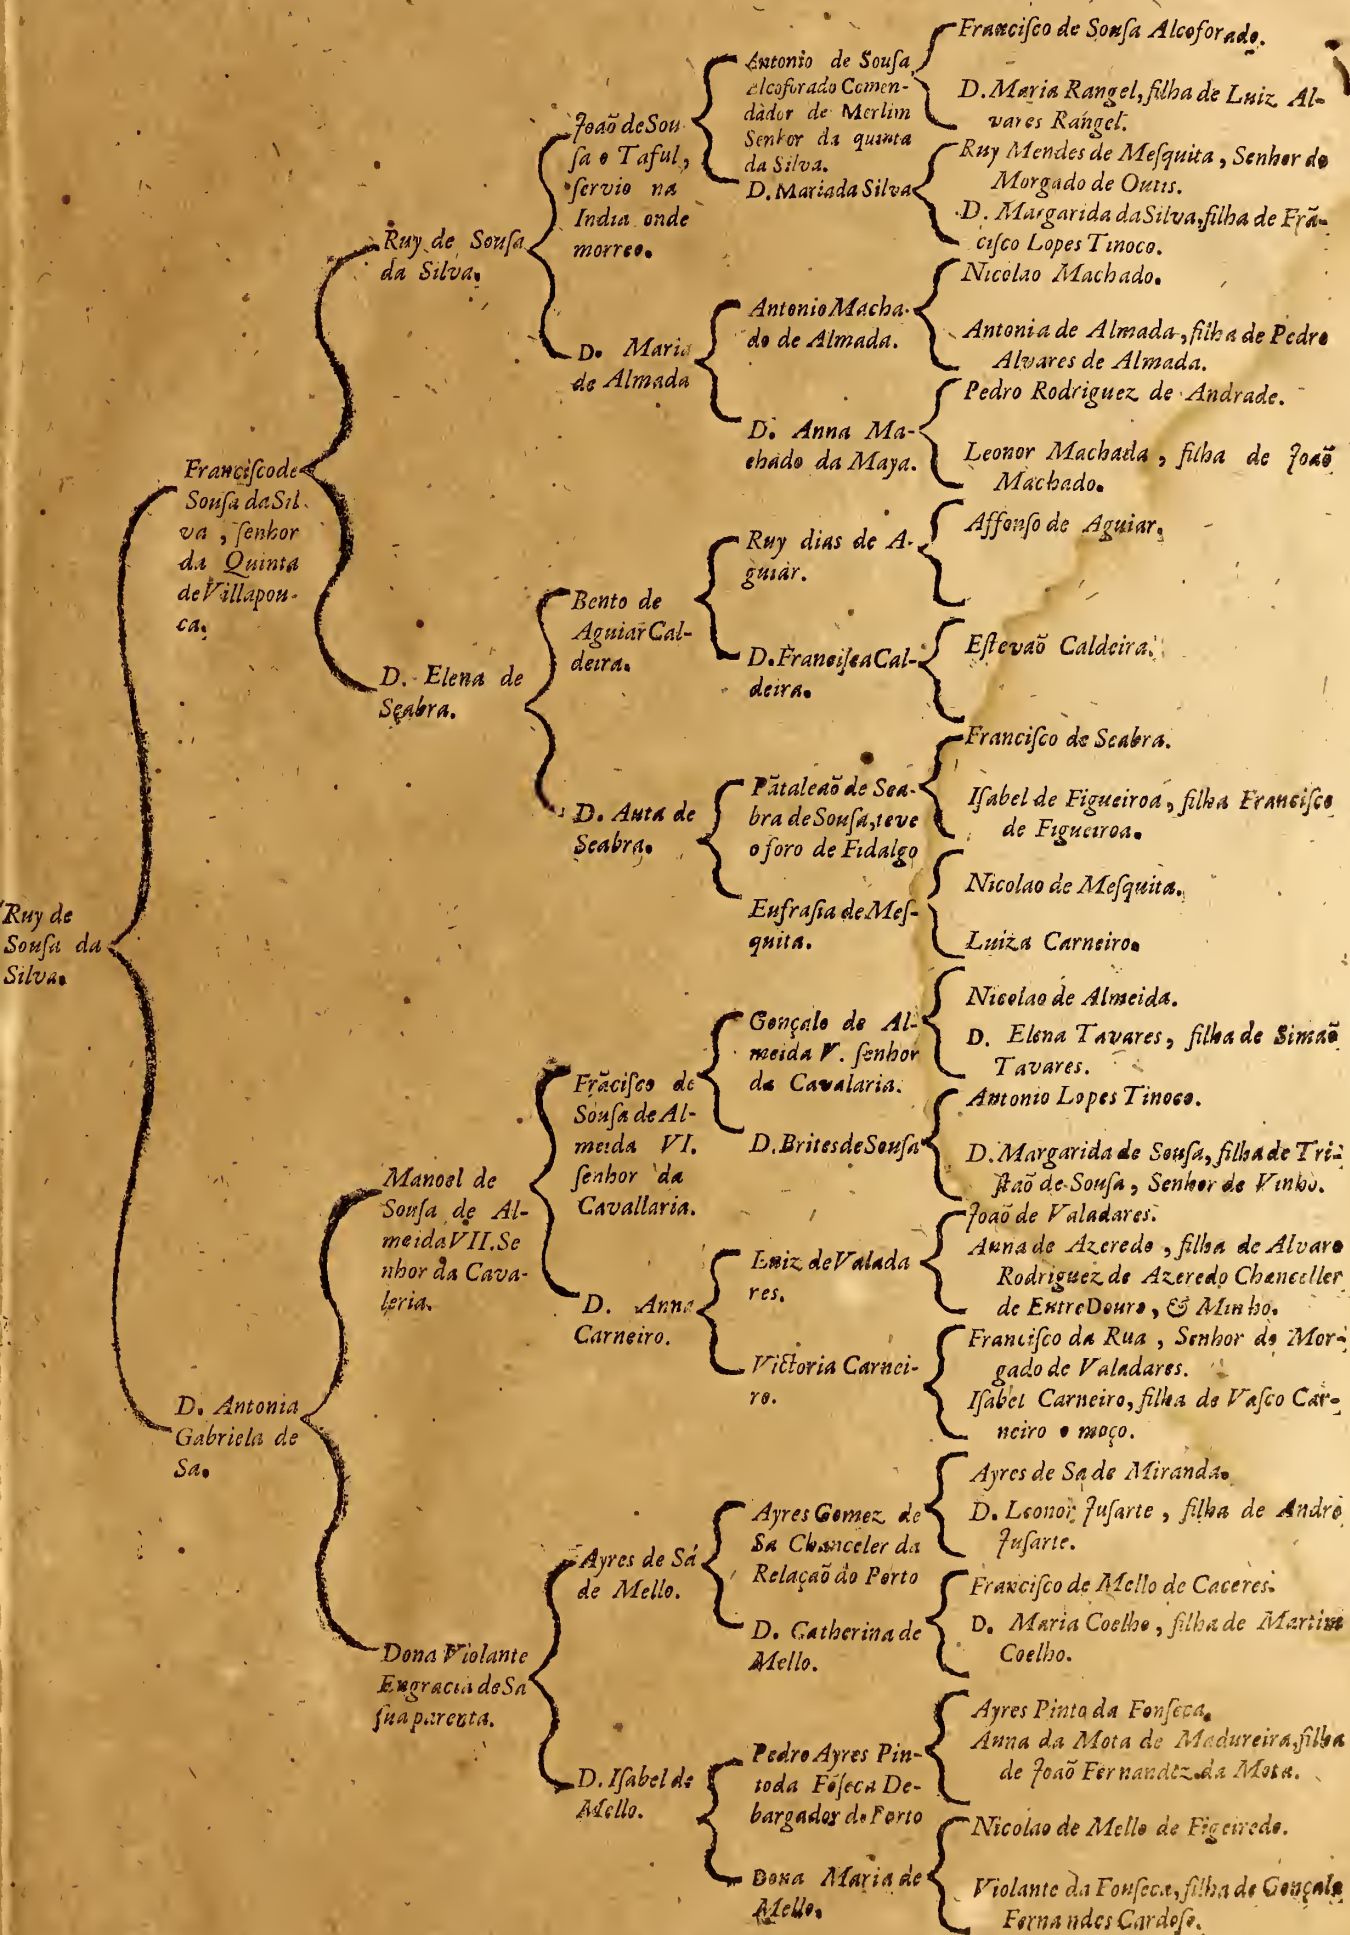 Ruy de
Sousa da
Silva.
Francisco de
Sousa da Sil-
va, senhor
da Quinta
de Villapou-
ca.
D. Antonia
Gabriela de
Sa.
Ruy de Sousa
da Silva.
D. Elena de
Seabra.
Manoel de
Sousa de Al-
meida VII. Se
nhor da Cava-
leria.
Dona Violante
Engracia de Sa
sua parenta.
João de Sou-
sa o Taful,
servio na
India onde
morreo.
D. Maria
de Almada
Bento de
Aguiar Cal-
deira.
D. Auta de
Seabra.
Frãcisco de
Sousa de Al-
meida VI.
senhor da
Cavallaria.
D. Anna
Carneiro.
Ayres de Sá
de Mello.
D. Isabel de
Mello.
Antonio de Sousa
Alcoforado Comen-
dador de Merlim
Senhor da quinta
da Silva.
D. Maria da Silva
Antonio Macha-
do de Almada.
D. Anna Ma-
chado da Maya.
Ruy dias de A-
guiar.
D. Francisca Cal-
deira.
Pãtaleaõ de Sea-
bra de Sousa, teve
o foro de Fidalgo
Eufrasia de Mes-
quita.
Gonçalo de Al-
meida V. senhor
da Cavalaria.
D. Brites de Sousa
Luiz de Valada
res.
Victoria Carnei-
ro.
Ayres Gomez de
Sa Chanceler da
Relaçaõ do Porto
D. Catherina de
Mello.
Pedro Ayres Pin-
to da Fõseca De-
bargador do Porto
Dona Maria de
Mello.
Francisco de Sousa Alcoforado.
D. Maria Rangel, filha de Luiz Al-
vares Rangel.
Ruy Mendes de Mesquita, Senhor do
Morgado de Outis.
D. Margarida da Silva, filha de Frã-
cisco Lopes Tinoco.
Nicolao Machado.
Antonia de Almada, filha de Pedro
Alvares de Almada.
Pedro Rodriguez de Andrade.
Leonor Machada, filha de Joaõ
Machado.
Affonso de Aguiar.
Estevaõ Caldeira.
Francisco de Seabra.
Isabel de Figueiroa, filha Francisco
de Figueiroa.
Nicolao de Mesquita.
Luiza Carneiro.
Nicolao de Almeida.
D. Elena Tavares, filha de Simaõ
Tavares.
Antonio Lopes Tinoco.
D. Margarida de Sousa, filha de Tri-
staõ de Sousa, Senhor de Vinho.
Joaõ de Valadares.
Anna de Azeredo, filha de Alvaro
Rodriguez de Azeredo Chanceller
de Entre Douro, & Minho.
Francisco da Rua, Senhor do Mor-
gado de Valadares.
Isabel Carneiro, filha de Vasco Car-
neiro o moço.
Ayres de Sa de Miranda.
D. Leonor Jusarte, filha de Andre
Jusarte.
Francisco de Mello de Caceres.
D. Maria Coelho, filha de Martim
Coelho.
Ayres Pinto da Fonseca.
Anna da Mota de Madureira, filha
de Joaõ Fernandez da Mota.
Nicolao de Mello de Figeiredo.
Violante da Fonseca, filha de Gonçalo
Fernandes Cardoso.